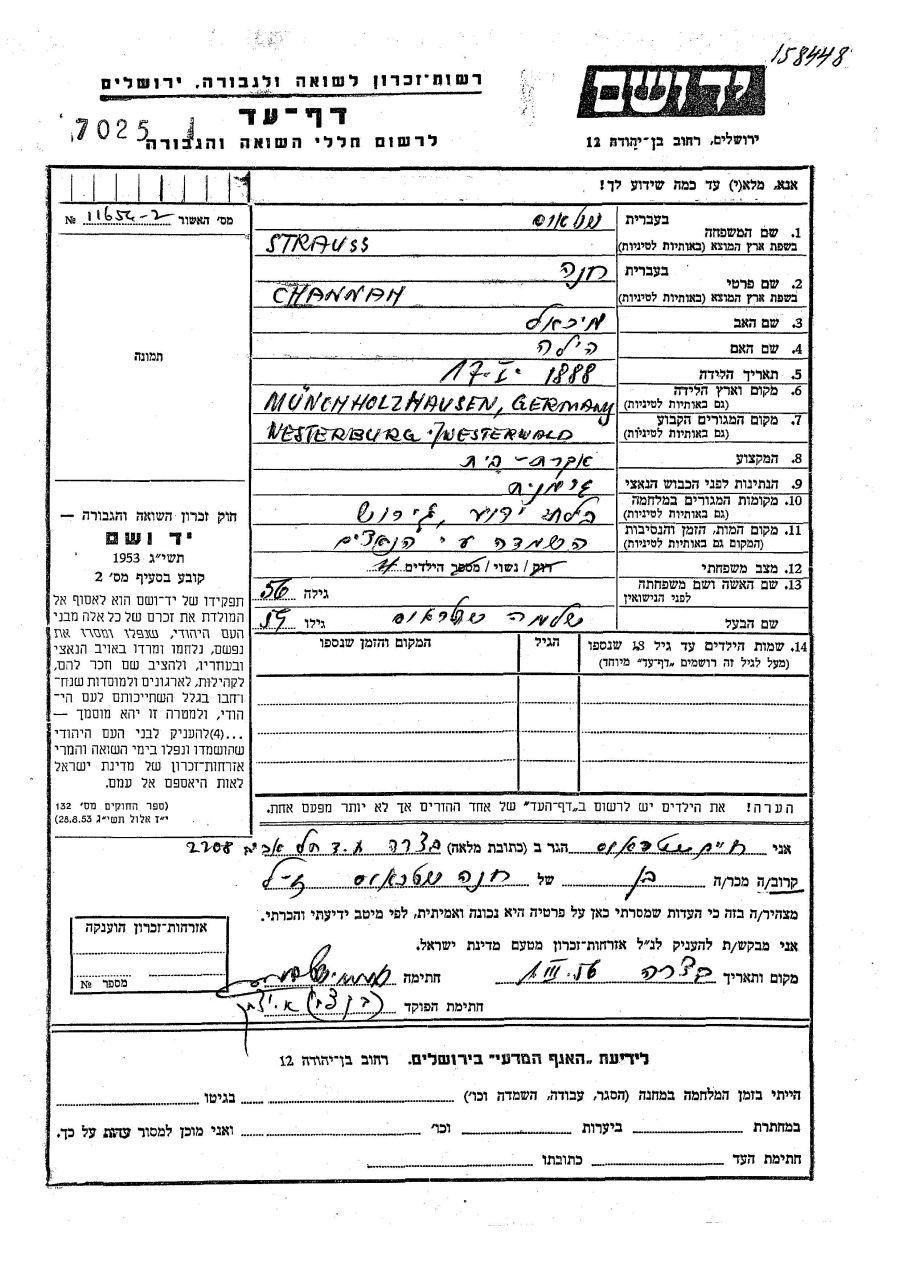 158448
יד ושם
ירושלים, רחוב בן-יהודה 12
רשות-זכרון לשואה ולגבורה, ירושלים
דף-עד
7025
לרשום חללי השואה והגבורה
אנא, מלא(י) עד כמה שידוע לך!
מס׳ האשור 11654-2 №
תמונה
1. שם המשפחה
בעברית שטראוס
בשפת ארץ המוצא (באותיות לטיניות) STRAUSS
2. שם פרטי
בעברית חנה
בשפת ארץ המוצא (באותיות לטיניות) CHANNAH
3. שם האב מיכאל
4. שם האם הילה
5. תאריך הלידה 17·I· 1888
6. מקום וארץ הלידה (גם באותיות לטיניות) MÜNCHHOLZHAUSEN, GERMANY
7. מקום המגורים הקבוע (גם באותיות לטיניות) WESTERBURG /WESTERWALD
8. המקצוע עקרת-בית
9. הנתינות לפני הכבוש הנאצי גרמנית
10. מקומות המגורים במלחמה (גם באותיות לטיניות) בלתי ידוע, גירוש
11. מקום המות, הזמן והנסיבות (המקום גם באותיות לטיניות) השמדה ע״י הנאצים
12. מצב משפחתי רוק/ נשוי/ מספר הילדים 4
13. שם האשה ושם משפחתה לפני הנישואין
גילה 56
שם הבעל שלמה שטראוס גילו 59
14. שמות הילדים עד גיל 18 שנספו (מעל לגיל זה רושמים "דף-עד" מיוחד)
הגיל
המקום והזמן שנספו
הערה! את הילדים יש לרשום ב"דף-העד" של אחד ההורים אך לא יותר מפעם אחת.
חוק זכרון השואה והגבורה —
יד ושם
תשי״ג 1953
קובע בסעיף מס׳ 2
תפקידו של יד-ושם הוא לאסוף אל
המולדת את זכרם של כל אלה מבני
העם היהודי, שנפלו ומסרו את
נפשם, נלחמו ומרדו באויב הנאצי
ובעוזריו, ולהציב שם וזכר להם,
לקהילות, לארגונים ולמוסדות שנח-
רבו בגלל השתייכותם לעם הי-
הודי, ולמטרה זו יהא מוסמך —
...(4)להעניק לבני העם היהודי
שהושמדו ונפלו בימי השואה והמרי
אזרחות-זכרון של מדינת ישראל
לאות היאספם אל עמם.
(ספר החוקים מס׳ 132
י״ז אלול תשי״ג 28.8.53)
אני חיים שטראוס הגר ב (כתובת מלאה) בצרה ת.ד תל אביב 2208
קרוב/ה מכר/ה בן של חנה שטראוס ז״ל
מצהיר/ה בזה כי העדות שמסרתי כאן על פרטיה היא נכונה ואמיתית, לפי מיטב ידיעתי והכרתי.
אני מבקש/ת להעניק לנ״ל אזרחות-זכרון מטעם מדינת ישראל.
מקום ותאריך בצרה חתימה
חתימת הפוקד
אזרחות-זכרון הוענקה
מספר №
לידיעת "האגף המדעי" בירושלים. רחוב בן-יהודה 12
הייתי בזמן המלחמה במחנה (הסגר, עבודה, השמדה וכו׳) בגיטו
במחתרת ביערות וכו׳ ואני מוכן למסור עדות על כך.
חתימת העד כתובתו